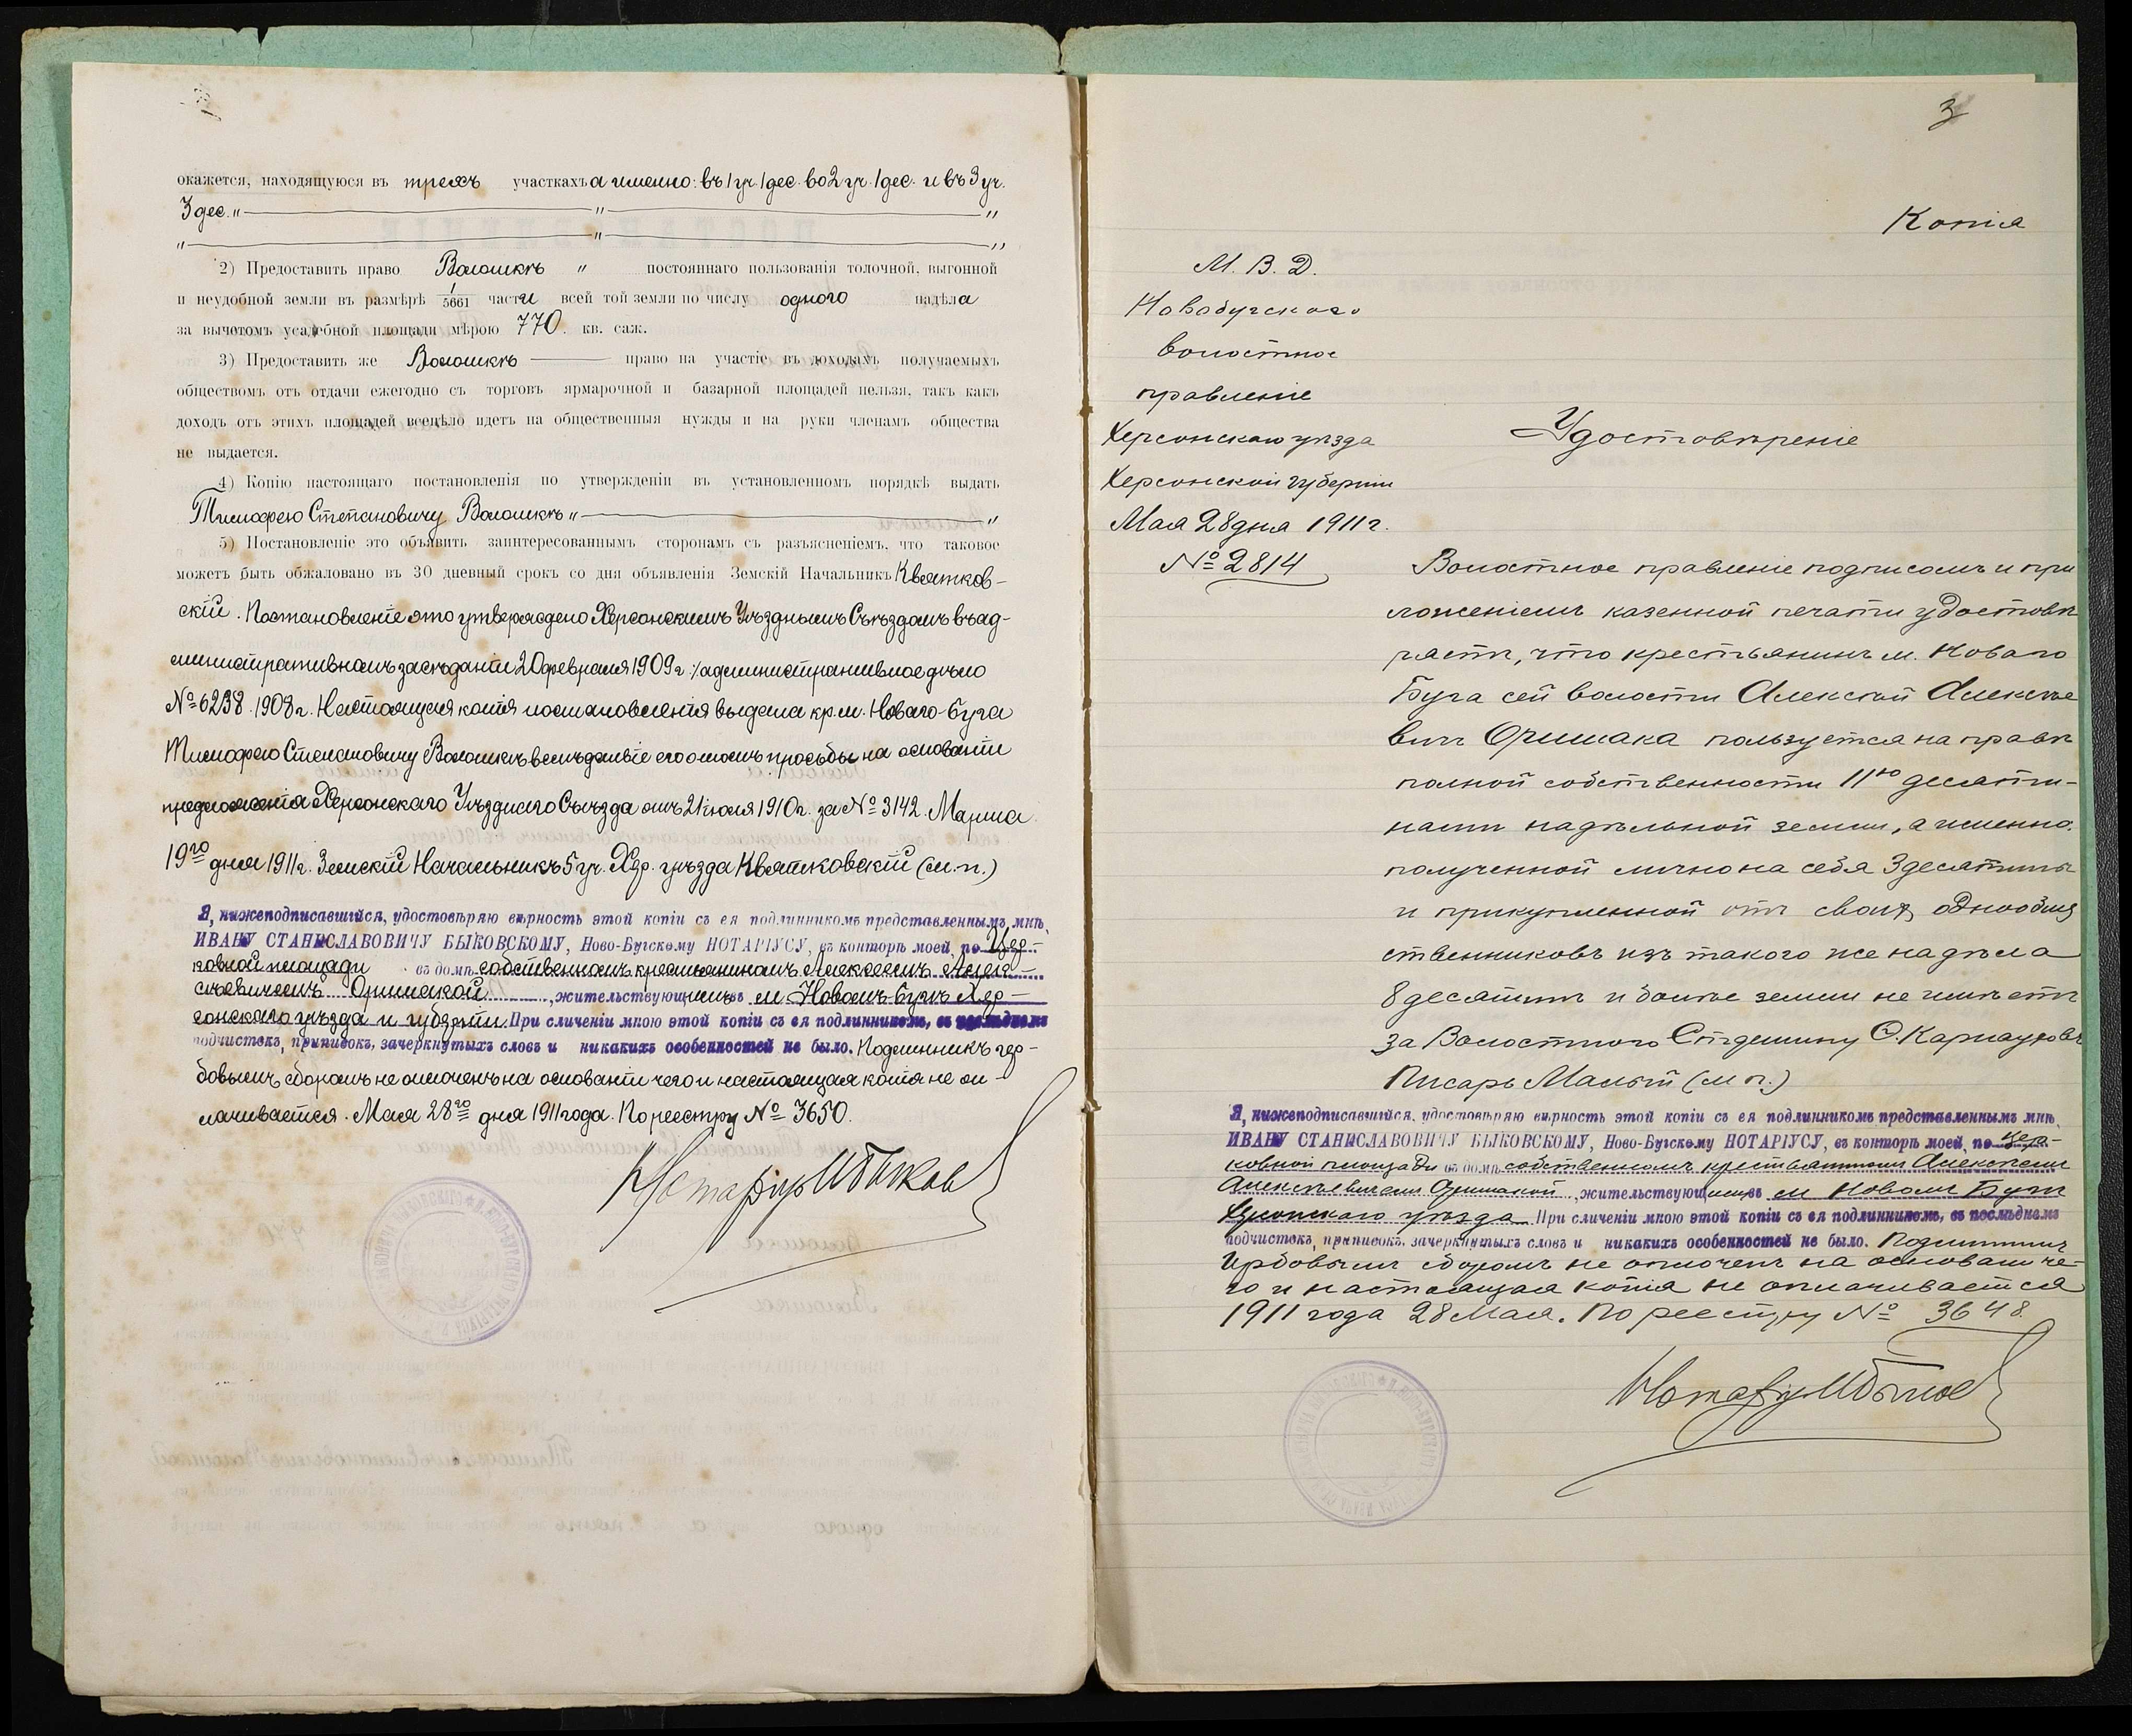 окажется, находящуюся въ трехъ участкахъ а именно: въ 1 уч. 1 дес. во 2 уч. 1 дес. и въ 3 уч.
3 дес. "
2) Предоставить право Волошкѣ " постояннаго пользованія толочной, выгонной
и неудобной земли въ размѣрѣ 1/5661 части всей той земли по числу одного надѣла
за вычетомъ усадебной площади мѣрою 770. кв. саж.
3) Предоставить же Волошкѣ право на участіе въ доходахъ получаемыхъ
обществомъ отъ отдачи ежегодно съ торговъ ярмарочной и базарной площадей нельзя, такъ какъ
доходъ отъ этихъ площадей всецѣло идетъ на общественныя нужды и на руки членамъ общества
не выдается.
4) Копію настоящаго постановленія по утвержденіи въ установленномъ порядкѣ выдать
Тимофею Степановичу Волошкѣ "
5) Постановленіе это объявить заинтересованнымъ сторонамъ съ разъясненіемъ, что таковое
можетъ быть обжаловано въ 30 дневный срокъ со дня объявленія Земскій Начальникъ Квятков-
скій. Постановленіе это утверждено Херсонскимъ Уѣзднымъ Съѣздомъ въ ад-
министративномъ засѣданіи 20 февраля 1909 г. административное дѣло
№ 6238. 1908 г. Настоящая копія постановленія выдана кр. м. Новаго-Буга
Тимофею Степановичу Волошкѣ вслѣдствіе его о томъ просьбы на основаніи
предложенія Херсонскаго Уѣзднаго Съѣзда отъ 21 іюля 1910 г. за № 3142. Марта
19го дня 1911 г. Земскій Начальникъ 5 уч. Хер. уѣзда Квятковскій (м.п.)
Я, нижеподписавшійся, удостовѣряю вѣрность этой копіи съ ея подлинникомъ представленнымъ мнѣ,
ИВАНУ СТАНИСЛАВОВИЧУ БЫКОВСКОМУ, Ново-Бугскому НОТАРІУСУ, въ конторѣ моей, по Цер-
ковной площади въ домѣ собственномъ крестьяниномъ Алексѣемъ Алек-
сѣевичемъ Оришакой, жительствующимъ въ м. Новомъ-Бугѣ Хер-
сонскаго уѣзда и губерніи. При сличеніи мною этой копіи съ ея подлинникомъ, въ послѣднемъ
подчистокъ, приписокъ, зачеркнутыхъ словъ и никакихъ особенностей не было. Подлинникъ гер-
бовымъ сборомъ не оплоченъ на основаніи чего и настоящая копія не оп-
лачивается. Мая 28го дня 1911 года. По реестру № 3650.
Нотаріусъ
3
Копія
М. В. Д.
Новобугского
волостное
правленіе
Херсонскаго уѣзда
Херсонской губерніи
Мая 28 дня 1911 г.
№ 2814
Удостовѣреніе
Волостное правленіе подписомъ и при
ложеніемъ казенной печати удостовѣ
ряетъ, что крестьянинъ м. Новаго
Буга сей волости Алексѣй Алексѣе
вичъ Оришака пользуется на правѣ
полной собственности 11ю десяти-
нами надѣльной земли, а именно:
полученной лично на себя 3 десятины
и прикупленной отъ своихъ однообще
ственниковъ изъ такого же надѣла
8 десятинъ и болѣе земли не имѣетъ
За Волостного Старшину С. Карнауховъ
Писарь Малый (м п.)
Я, нижеподписавшійся, удостовѣряю вѣрность этой копіи съ ея подлинникомъ представленнымъ мнѣ,
ИВАНУ СТАНИСЛАВОВИЧУ БЫКОВСКОМУ, Ново-Бугскому НОТАРІУСУ, въ конторѣ моей, по Цер-
ковной площади въ домѣ собственномъ крестьяниномъ Алексѣемъ
Алексѣевичемъ Оришакой, жительствующимъ въ м Новомъ Бугѣ
Херсонскаго уѣзда При сличеніи мною этой копіи съ ея подлинникомъ, въ послѣднемъ
подчистокъ, приписокъ, зачеркнутыхъ словъ и никакихъ особенностей не было. Подлинникъ
гербовымъ сборомъ не оплоченъ на основаніи че-
го и настоящая копія не оплачивается
1911 года 28 Мая. По реестру № 3648.
Нотаріусъ